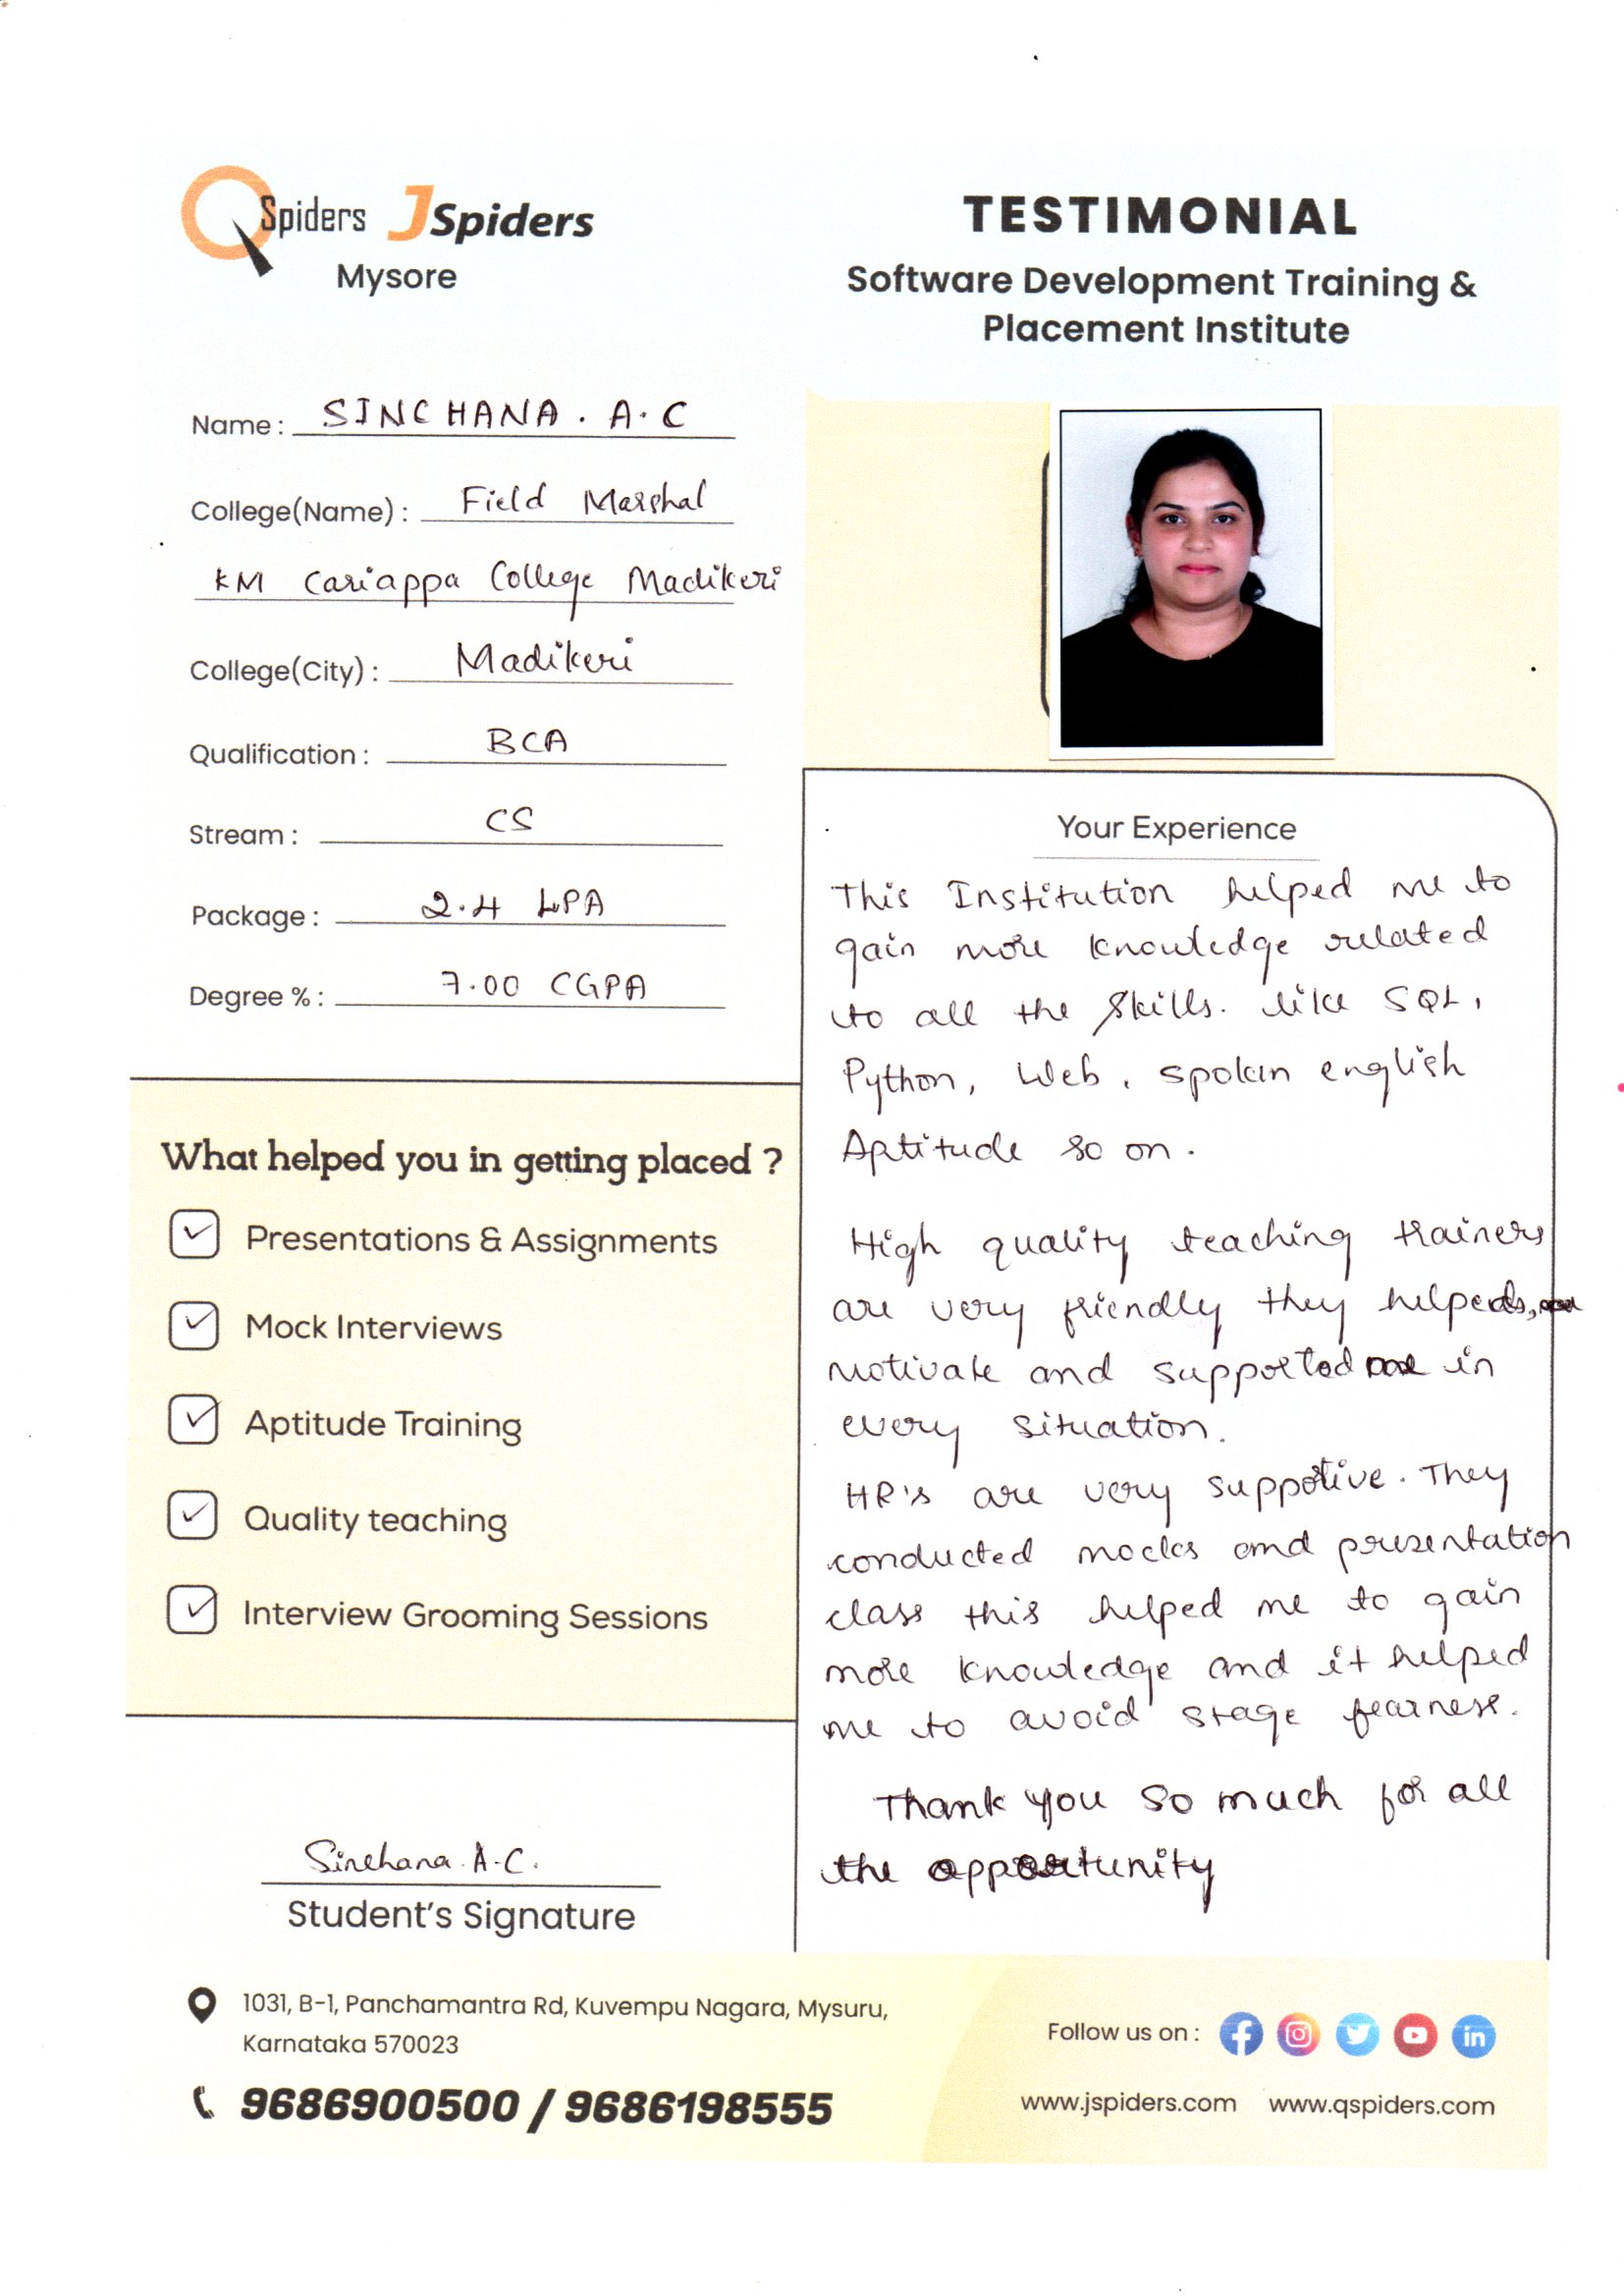 QSpiders JSpiders
Mysore
TESTIMONIAL
Software Development Training &
Placement Institute
Name : SINCHANA . A. C
College(Name) : Field Marshal
KM Cariappa College Madikeri
College(City) : Madikeri
Qualification : BCA
Stream : CS
Package : 2.4 LPA
Degree % : 7.00 CGPA
What helped you in getting placed ?
Presentations & Assignments
Mock Interviews
Aptitude Training
Quality teaching
Interview Grooming Sessions
Sinchana A.C.
Student's Signature
Your Experience
This Institution helped me to
gain more knowledge related
to all the skills. like SQL,
Python, Web, spoken english
Aptitude so on.
High quality teaching trainers
are very friendly they helpeds,
motivate and supported in
every situation.
HR's are very suppotive. They
conducted mocks and presentation
class this helped me to gain
more knowledge and it helped
me to avoid stage fearness.
Thank you so much for all
the opportunity
1031, B-1, Panchamantra Rd, Kuvempu Nagara, Mysuru,
Karnataka 570023
9686900500 / 9686198555
Follow us on :
www.jspiders.com www.qspiders.com